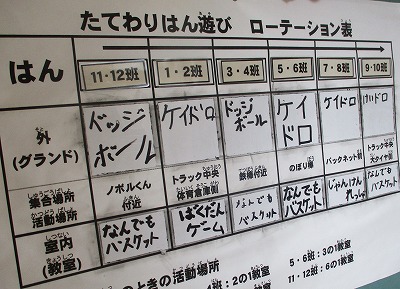 たてわりはん遊び ローテーション表
はん 11・12班 1・2班 3・4班 5・6班 7・8班 9・10班
外 ドッジ ケイドロ ドッジ ケイ ケイドロ けいドロ
(グランド) ボール ボール ドロ
集合場所 ノボルくん トラック中央 鉄棒付近 のぼり棒 バックネット前 トラック中央
活動場所 付近 体育倉庫前 大タイヤ前
室内 なんでも ばくだん なんでも なんでも じゃんけん なんでも
(教室) バスケット ゲーム バスケット バスケット れっしゃ バスケット
のときの活動場所 5・6班：3の1教室
4班：2の1教室 11・12班：6の1教室